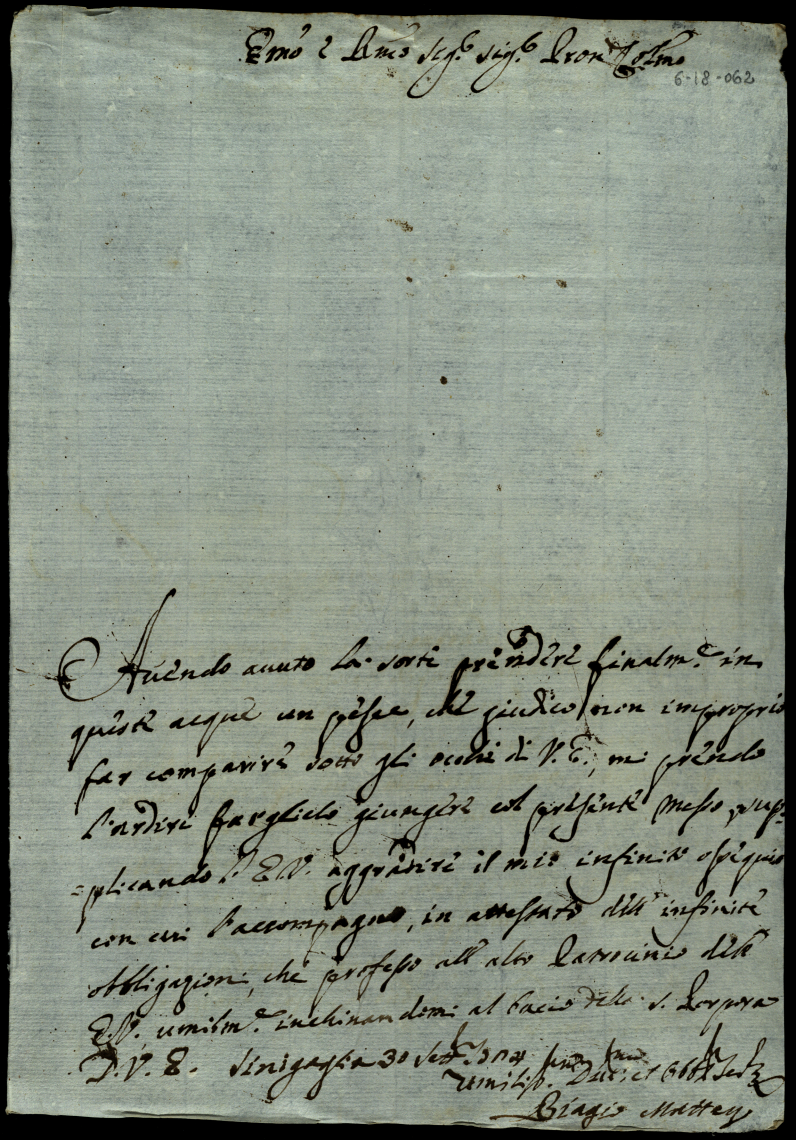 Emo e Rmo Sig.r Sig.r Pron Colmo
6-18-062
Avendo avuto la sorte prendere finalm.e in
queste acque un pesce, che giudico non improprio
far comparire sotto gli occhi di V.E., mi prendo
l'ardire farglielo giungere col presente messo, sup=
=plicando l'E.V. aggradire il mio infinito ossequio
con cui l'accompagno, in attestato dell' infinite
obbligazioni, che professo all' alto Patrocinio dell'
E.V. umilm.e inchinandomi al bacio della S. Porpora
D. V. E. Sinigaglia 30 Sett.e
Umiliss. Devmo et Obb. Ser.
Biagio Mattey